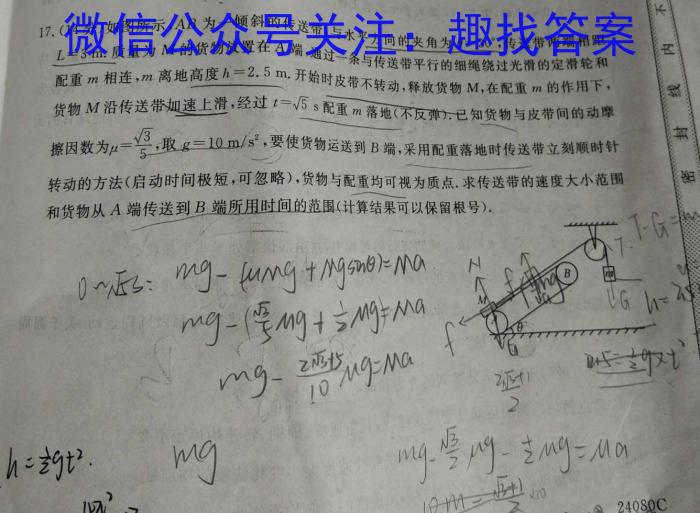 微信公众号关注:趣找答案
17.
如图所示,AB为
倾斜的传送带与水平方向的夹角为
L=3m.质量为M的货物放置在A端,通过一条与传送带平行的细绳绕过光滑的定滑轮和
配重m相连,m离地高度h=2.5m.开始时皮带不转动,释放货物M,在配重m的作用下,
货物M沿传送带加速上滑,经过t=√5 s配重m落地(不反弹).已知货物与皮带间的动摩
擦因数为μ=√3/5,取g=10m/s²,要使货物运送到B端,采用配重落地时传送带立刻顺时针
转动的方法(启动时间极短,可忽略),货物与配重均可视为质点.求传送带的速度大小范围
和货物从A端传送到B端所用时间的范围(计算结果可以保留根号).
0~√5s: mg-(μMg+Mgsinθ)=Ma
mg-(√3/5 Mg+1/2 Mg)=Ma
mg-(2√3+5)/10 Mg=Ma
N
f
M
B
θ
G
T
m
G
T-G=
h=
f
h=½gt².
mg
mg-√3/2 Mg-½Mg=Ma
24080C
不
内
线
封
密